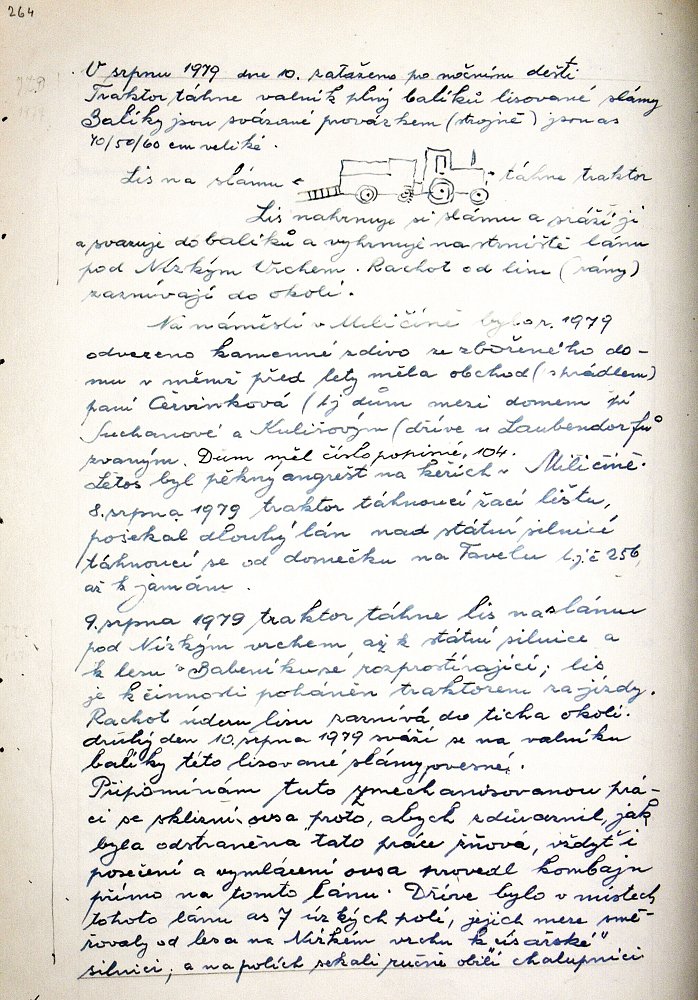 264
V srpnu 1979 dne 10. zataženo po nočním dešti
Traktor táhne valník plný balíků lisované slámy
Balíky jsou svázané provázkem (strojně) jsou as
70/50/60 cm veliké.
Lis na slámu táhne traktor
Lis nahrnuje si slámu a sráží ji
a svazuje do balíků a vyhrnuje na strniště lánu
pod Nízkým Vrchem. Rachot od lisu (rány)
zaznívají do okolí.
Na náměstí v Miličíně bylo r. 1979
odvezeno kamenné zdivo ze zbořeného do-
mu v němž před lety měla obchod (s prádlem)
paní Červinková (tj dům mezi domem pí
Suchanové a Kulišovým (dříve u Laubendorfů
zvaným. Dům měl číslo popisné, 104.
Letos byl pěkný angrešt na keřích v Miličíně.
8. srpna 1979 traktor táhnoucí žací lištu,
posekal dlouhý lán nad státní silnicí
táhnoucí se od domečku na Favelu t.j. č 256,
až k jamám.
9. srpna 1979 traktor táhne lis na slámu
pod Nízkým vrchem, až k státní silnice a
k lesu "Babeníku se rozprostírající; lis
je k činnosti poháněn traktorem za jízdy.
Rachot úderu lisu zaznívá do ticha okolí.
druhý den 10. srpna 1979 sváží se na valníku
balíky této lisované slámy ovesné.
Připomínám tuto zmechanisovanou prá-
ci se sklizní ovsa proto, abych zdůraznil, jak
byla odstraněna tato práce žňová, vždyť i
posečení a vymlácení ovsa provedl kombajn
přímo na tomto lánu. Dříve bylo v místech
tohoto lánu as 7 úzkých polí, jejich meze smě-
řovaly od lesa na Nízkém vrchu k "císařské"
silnici, a na polích sekali ručně obilí chalupníci